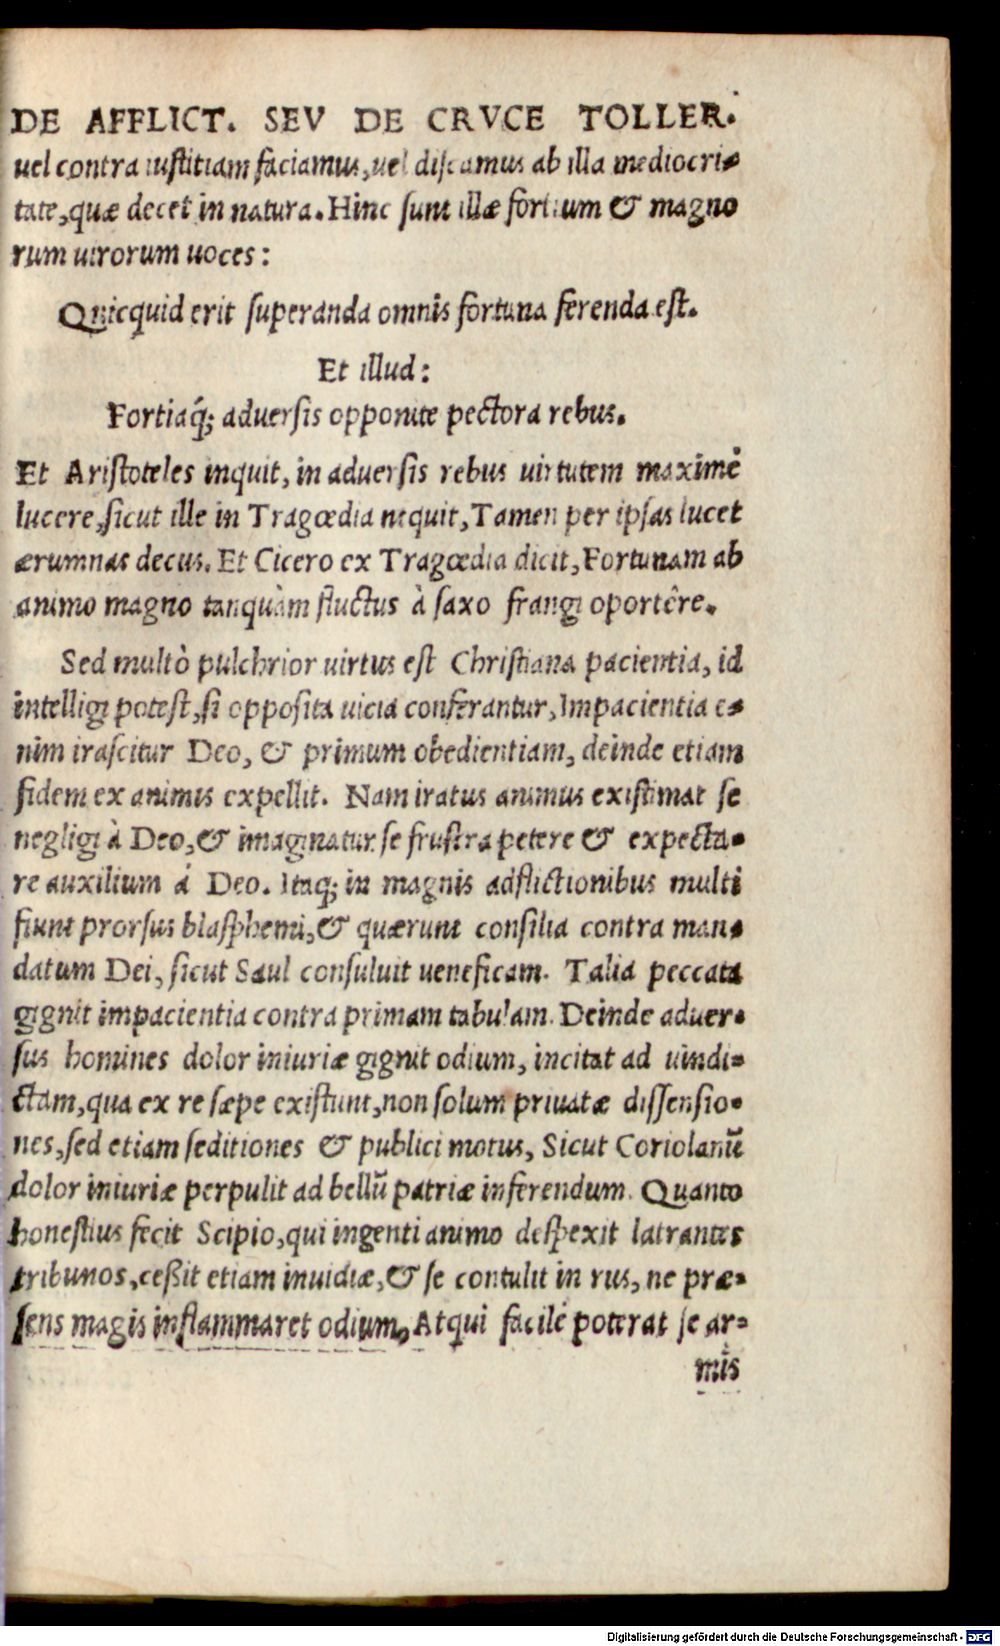 DE AFFLICT. SEV DE CRVCE TOLLER.
uel contra iustitiam faciamus, uel discamus ab illa mediocri-
tate, quæ decet in natura. Hinc sunt illæ fortium & magno
rum uirorum uoces:
Quicquid erit superanda omnis fortuna ferenda est.
Et illud:
Fortiaq́; aduersis opponite pectora rebus.
Et Aristoteles inquit, in aduersis rebus uirtutem maximè
lucere, sicut ille in Tragœdia inquit, Tamen per ipsas lucet
ærumnas decus. Et Cicero ex Tragœdia dicit, Fortunam ab
animo magno tanquàm fluctus à saxo frangi oportêre.
Sed multò pulchrior uirtus est Christiana pacientia, id
intelligi potest, si opposita uicia conferantur, Impacientia e-
nim irascitur Deo, & primum obedientiam, deinde etiam
fidem ex animis expellit. Nam iratus animus existimat se
negligi à Deo, & imaginatur se frustra petere & expecta-
re auxilium á Deo. Itaq; in magnis adflictionibus multi
fiunt prorsus blasphemi, & quærunt consilia contra man-
datum Dei, sicut Saul consuluit ueneficam. Talia peccata
gignit impacientia contra primam tabulam. Deinde aduer-
sus homines dolor iniuriæ gignit odium, incitat ad uindi-
ctam, qua ex re sæpe existunt, non solum priuatæ dissensio-
nes, sed etiam seditiones & publici motus, Sicut Coriolanū
dolor iniuriæ perpulit ad bellū patriæ inferendum. Quanto
honestius fecit Scipio, qui ingenti animo despexit latrantes
tribunos, ceßit etiam inuidiæ, & se contulit in rus, ne præ-
sens magis inflammaret odium, Atqui facilè poterat se ar-
mis
Digitalisierung gefördert durch die Deutsche Forschungsgemeinschaft - DFG